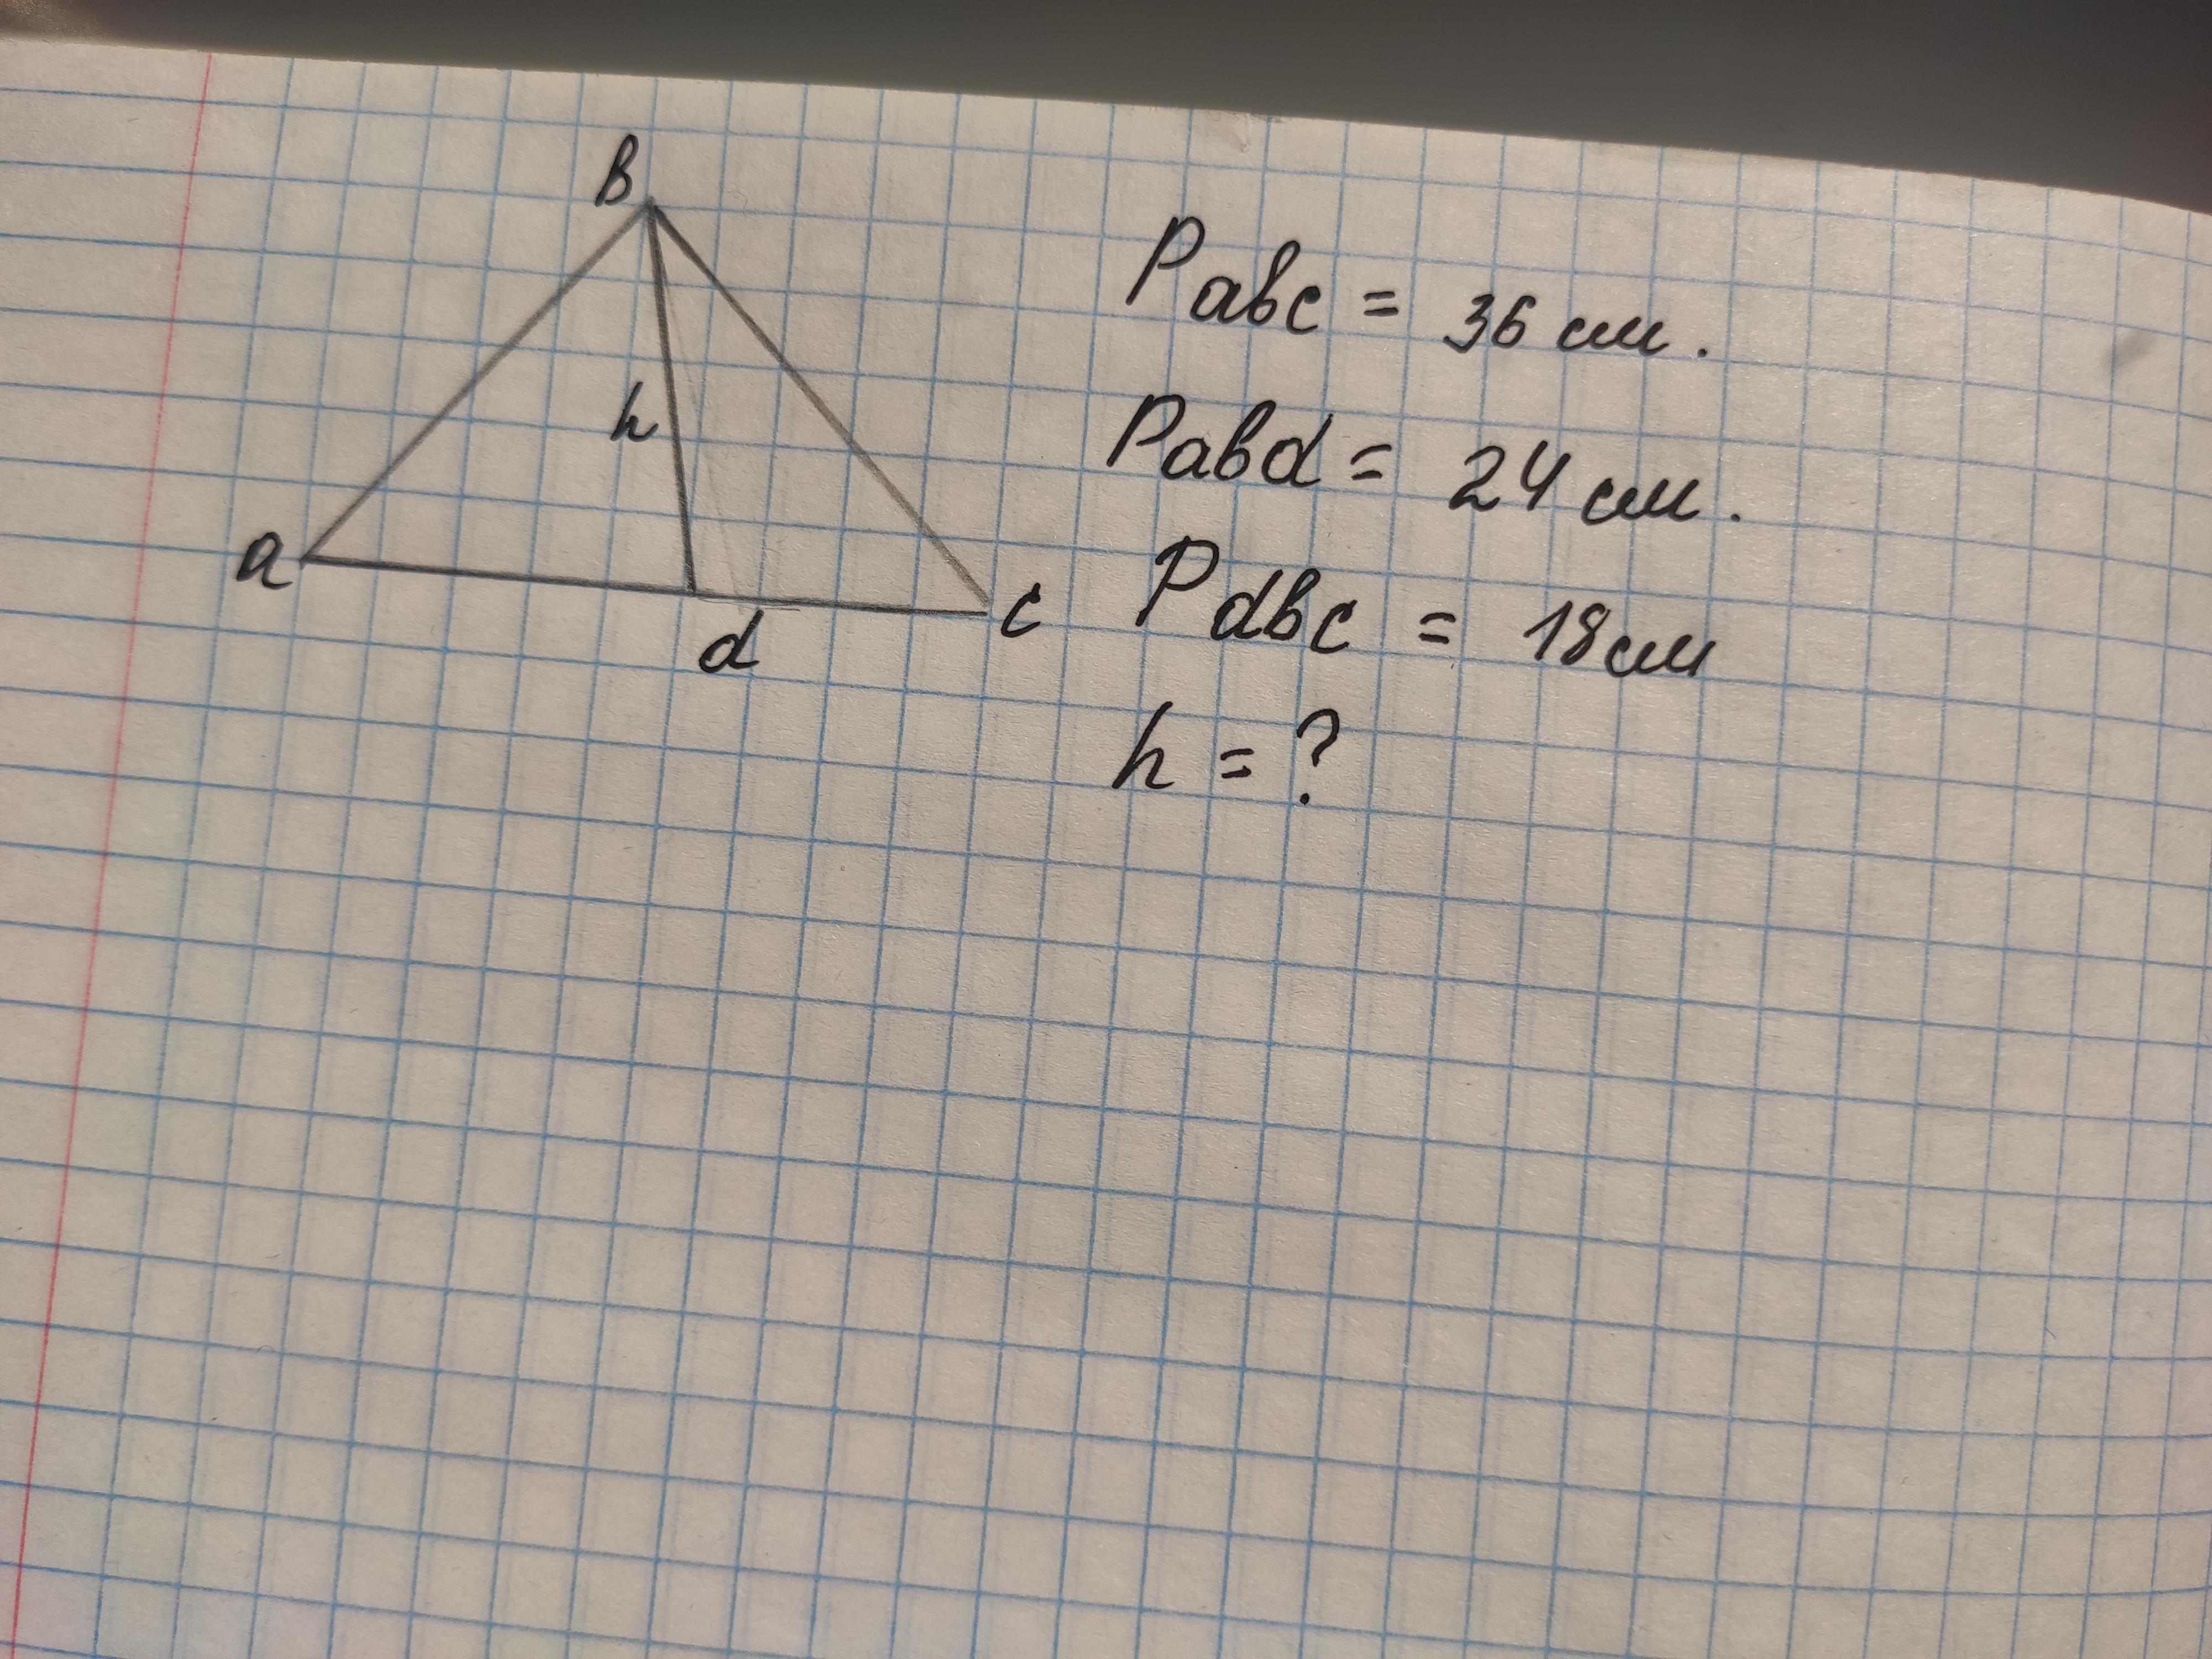 B
h
a
d
c
Pabc = 36 см.
Pabd = 24 см.
Pdbc = 18 см
h = ?